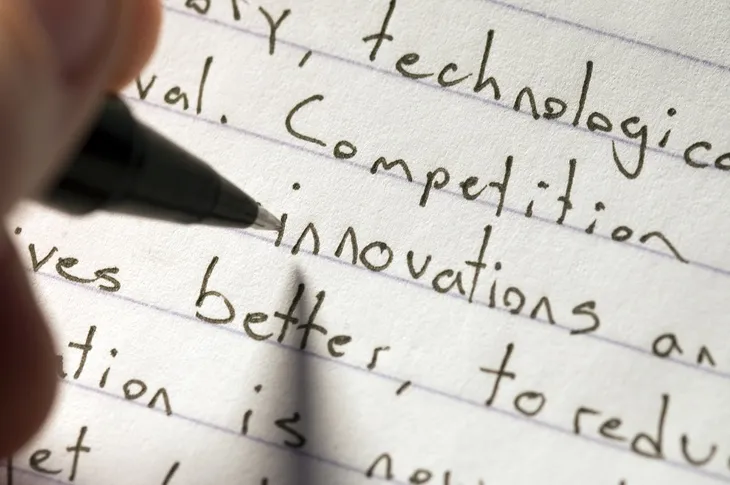 ory, technologica
val. Competition
innovations an
ives better, to redu
ation is now
et